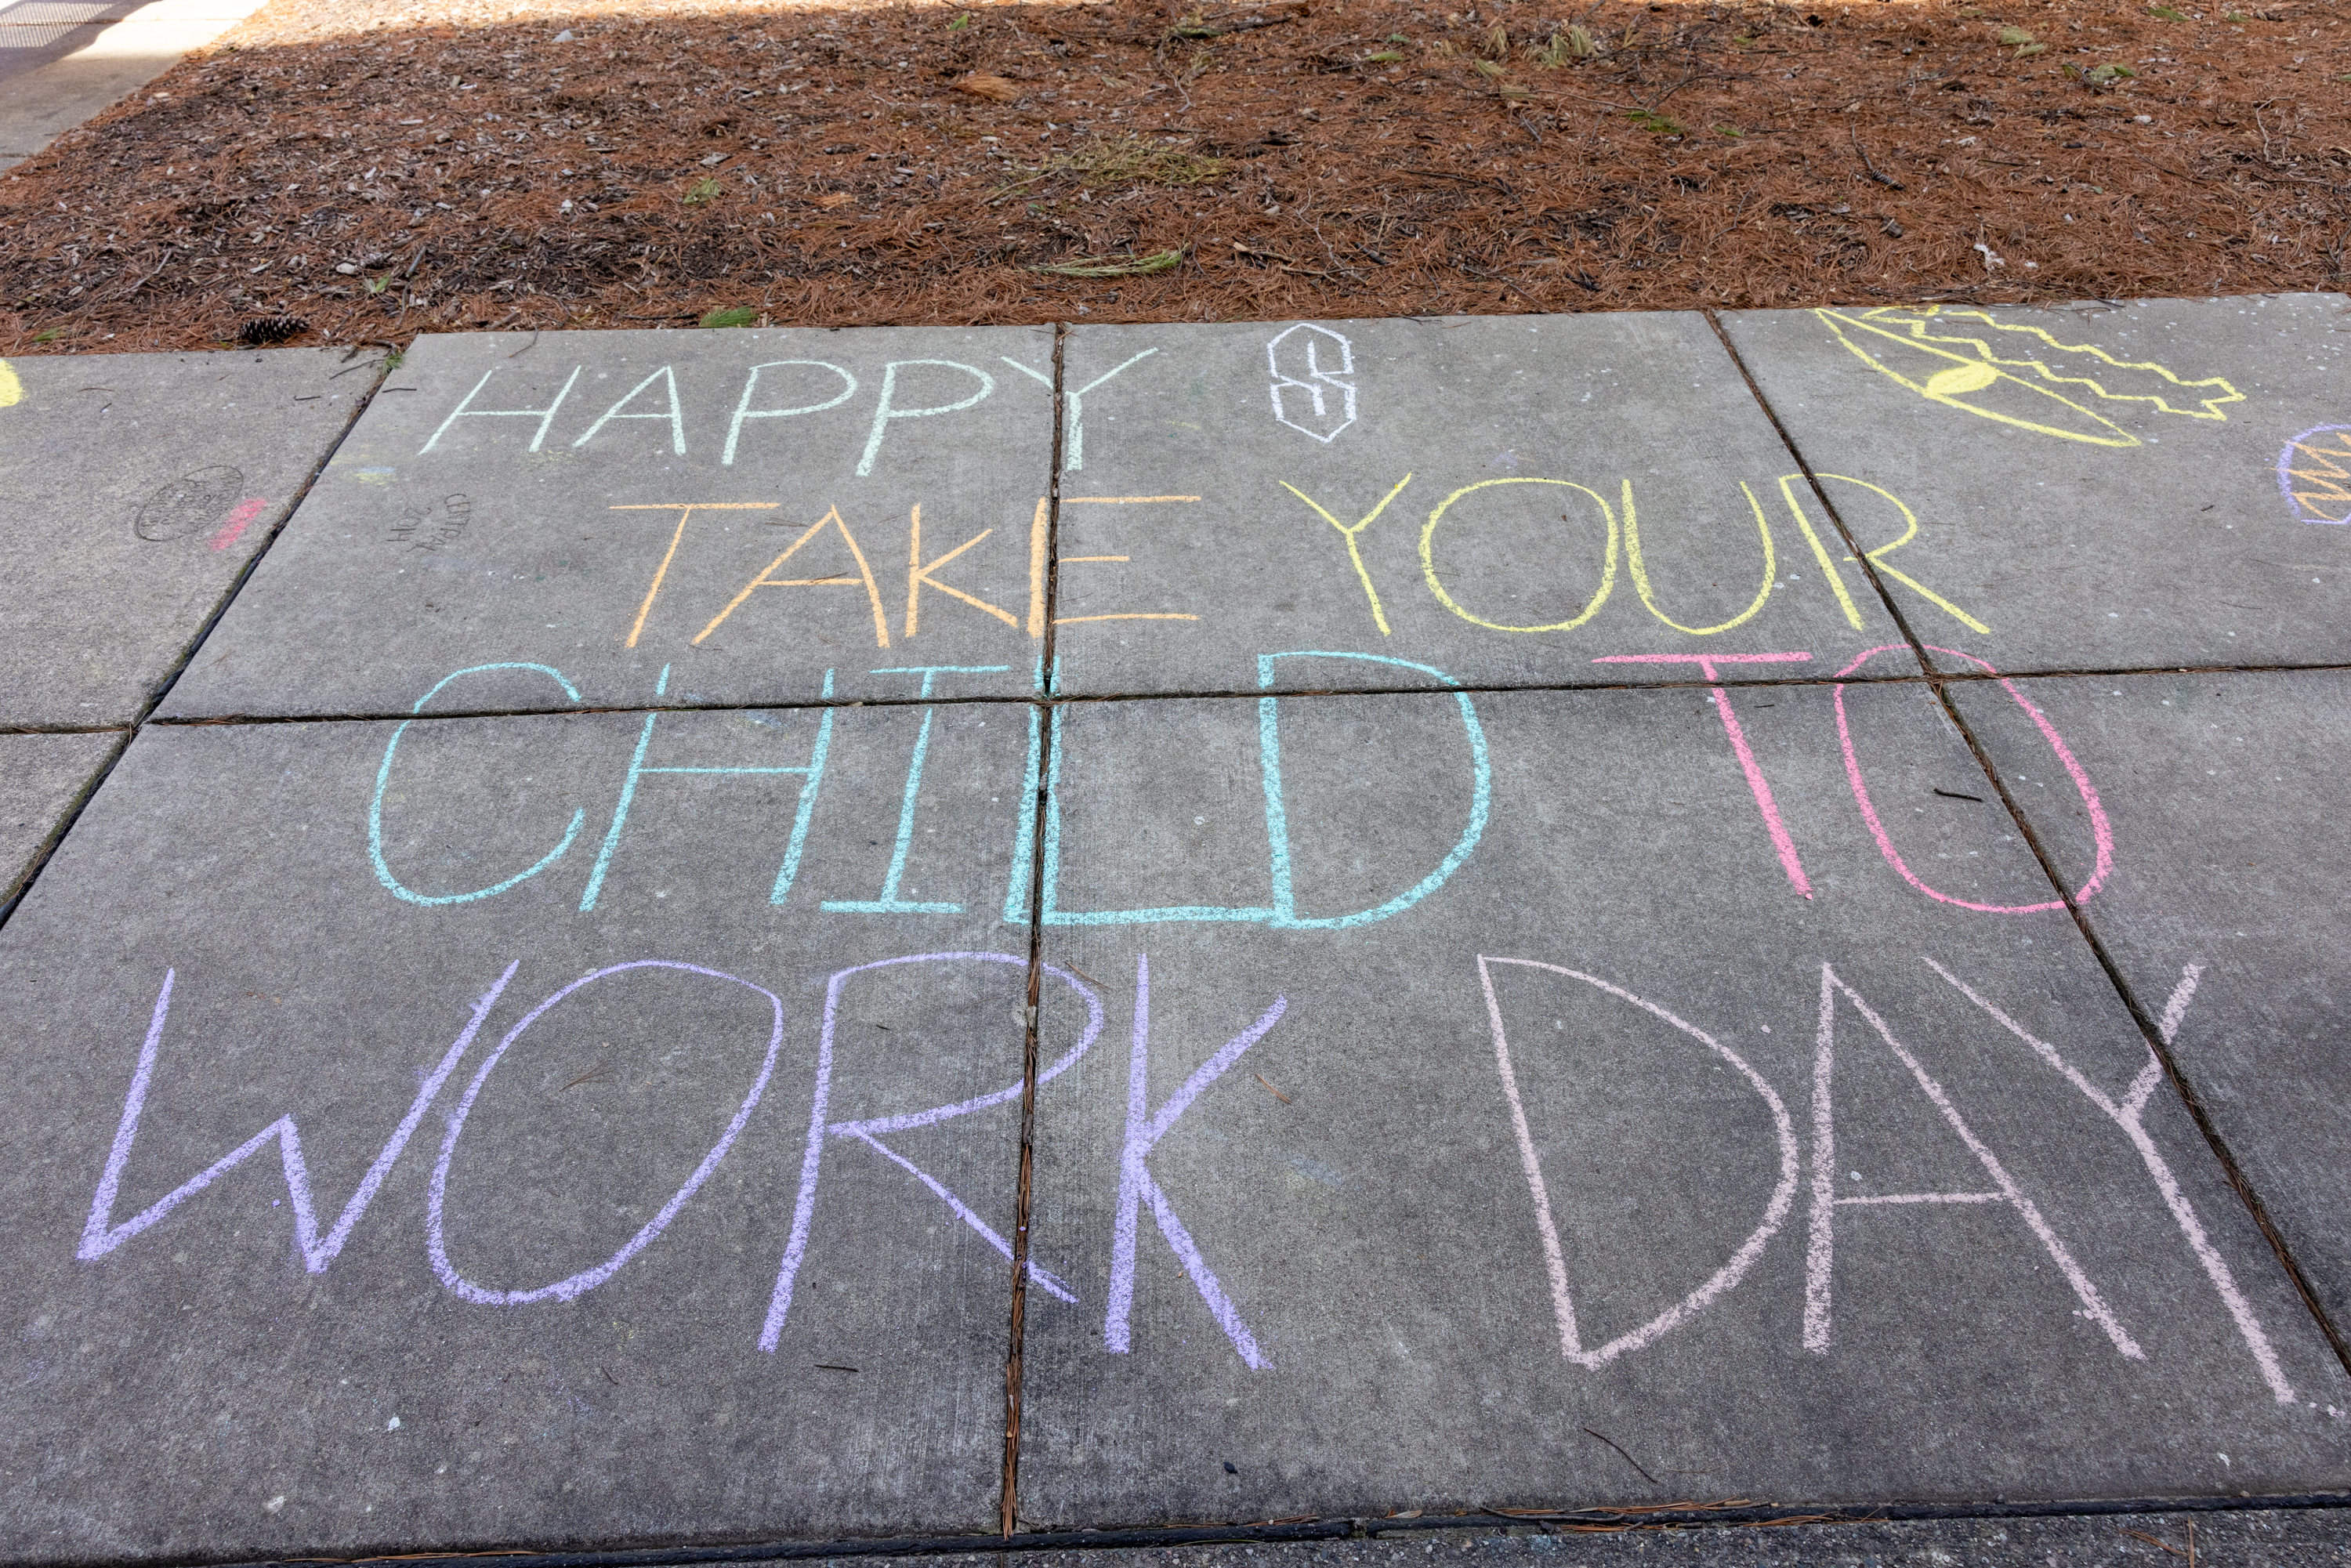 HAPPY
TAKE YOUR
CHILD TO
WORK DAY